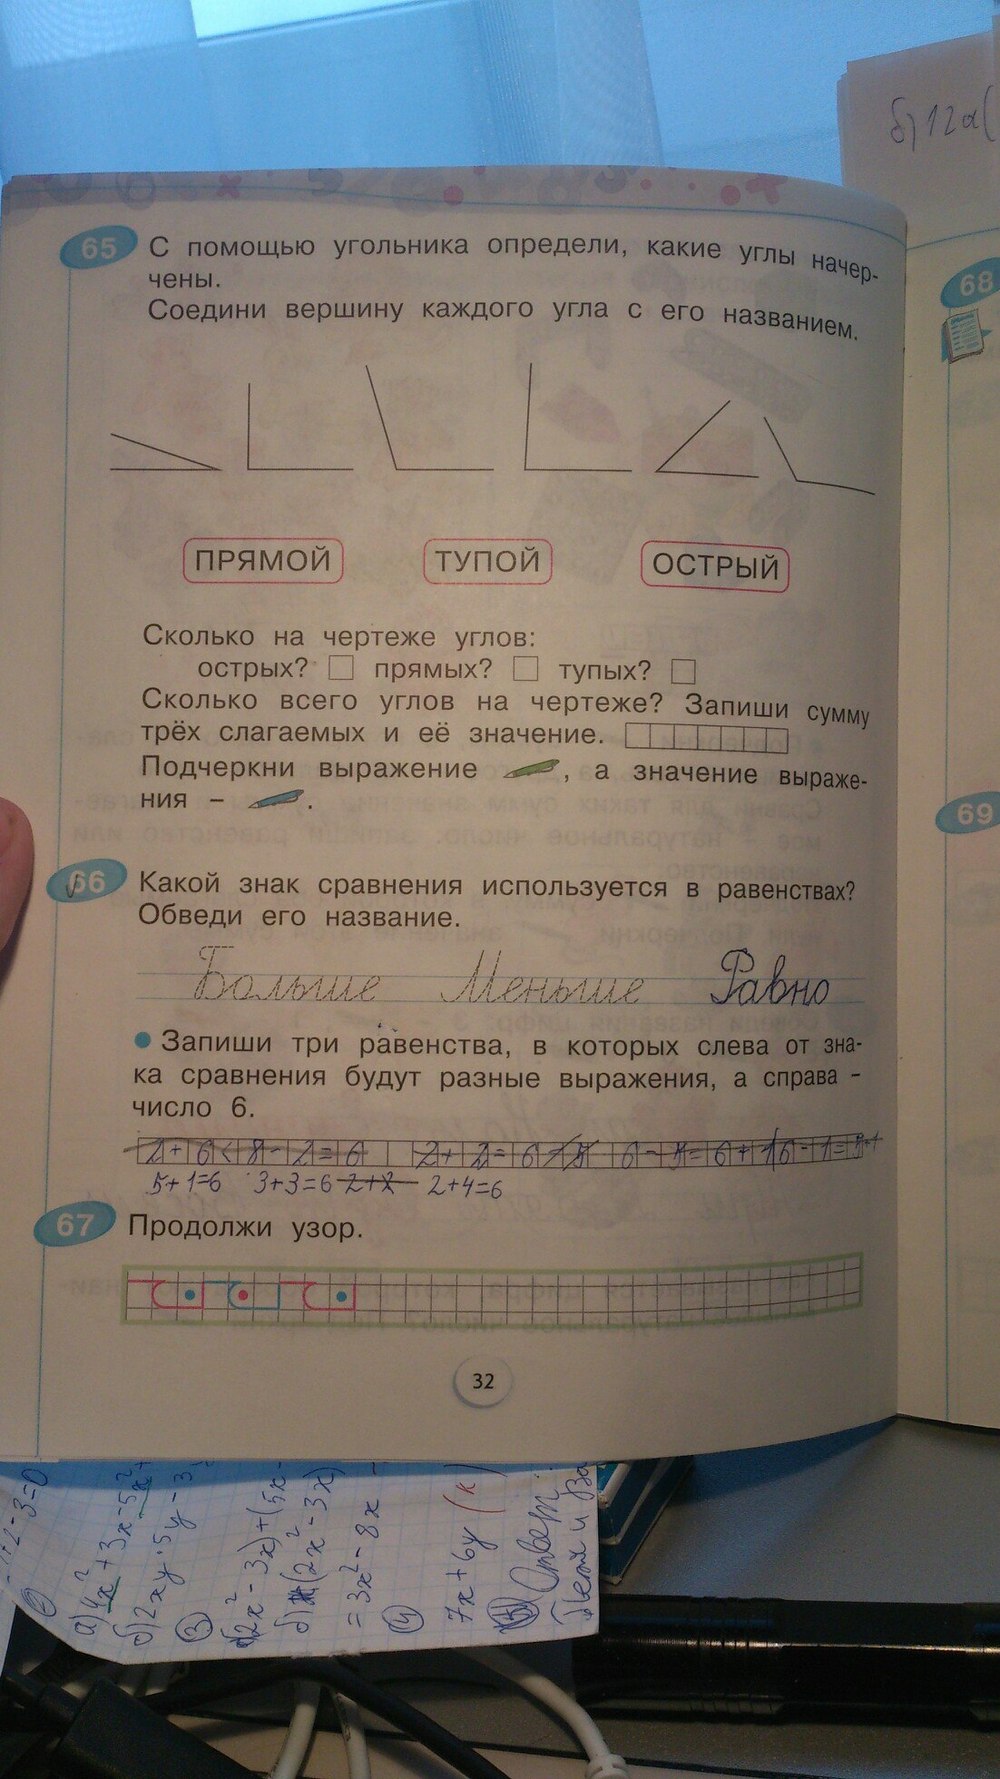 б) 12а(
65 С помощью угольника определи, какие углы начер-
чены.
Соедини вершину каждого угла с его названием.
68
ПРЯМОЙ ТУПОЙ ОСТРЫЙ
Сколько на чертеже углов:
острых? прямых? тупых?
Сколько всего углов на чертеже? Запиши сумму
трёх слагаемых и её значение.
Подчеркни выражение , а значение выраже-
ния – .
69
66 Какой знак сравнения используется в равенствах?
Обведи его название.
Больше Меньше Равно
• Запиши три равенства, в которых слева от зна-
ка сравнения будут разные выражения, а справа –
число 6.
5+1=6 3+3=6 2+2 2+4=6
67 Продолжи узор.
32
а) 4x²+3x-5x²
б) 2xy·5y-3
3
2x²-3x)+(5x-
(2x²-3x)
=3x²-8x-
4
7x+6y (к
Ответ